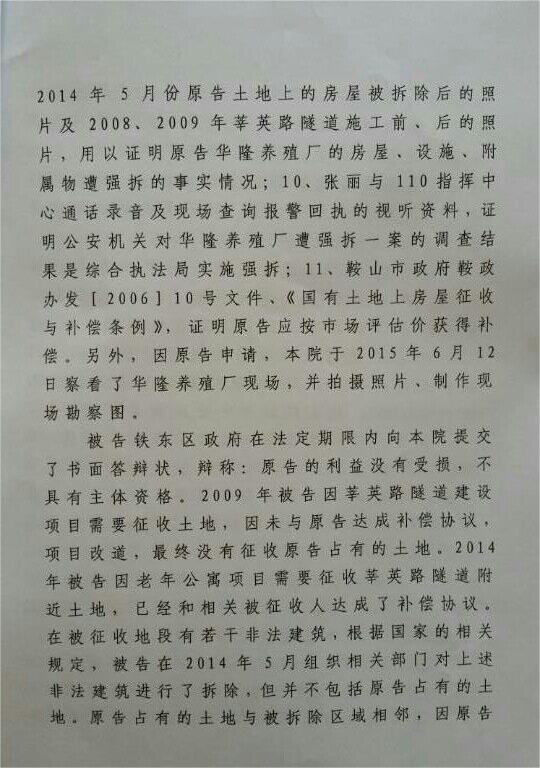 2014 年 5 月份原告土地上的房屋被拆除后的照
片及 2008、2009 年莘英路隧道施工前、后的照
片，用以证明原告华隆养殖厂的房屋、设施、附
属物遭强拆的事实情况；10、张丽与 110 指挥中
心通话录音及现场查询报警回执的视听资料，证
明公安机关对华隆养殖厂遭强拆一案的调查结
果是综合执法局实施强拆；11、鞍山市政府鞍政
办发［2006］10 号文件、《国有土地上房屋征收
与补偿条例》，证明原告应按市场评估价获得补
偿。另外，因原告申请，本院于 2015 年 6 月 12
日察看了华隆养殖厂现场，并拍摄照片、制作现
场勘察图。
被告铁东区政府在法定期限内向本院提交
了书面答辩状，辩称：原告的利益没有受损，不
具有主体资格。2009 年被告因莘英路隧道建设
项目需要征收土地，因未与原告达成补偿协议，
项目改道，最终没有征收原告占有的土地。2014
年被告因老年公寓项目需要征收莘英路隧道附
近土地，已经和相关被征收人达成了补偿协议。
在被征收地段有若干非法建筑，根据国家的相关
规定，被告在 2014 年 5 月组织相关部门对上述
非法建筑进行了拆除，但并不包括原告占有的土
地。原告占有的土地与被拆除区域相邻，因原告